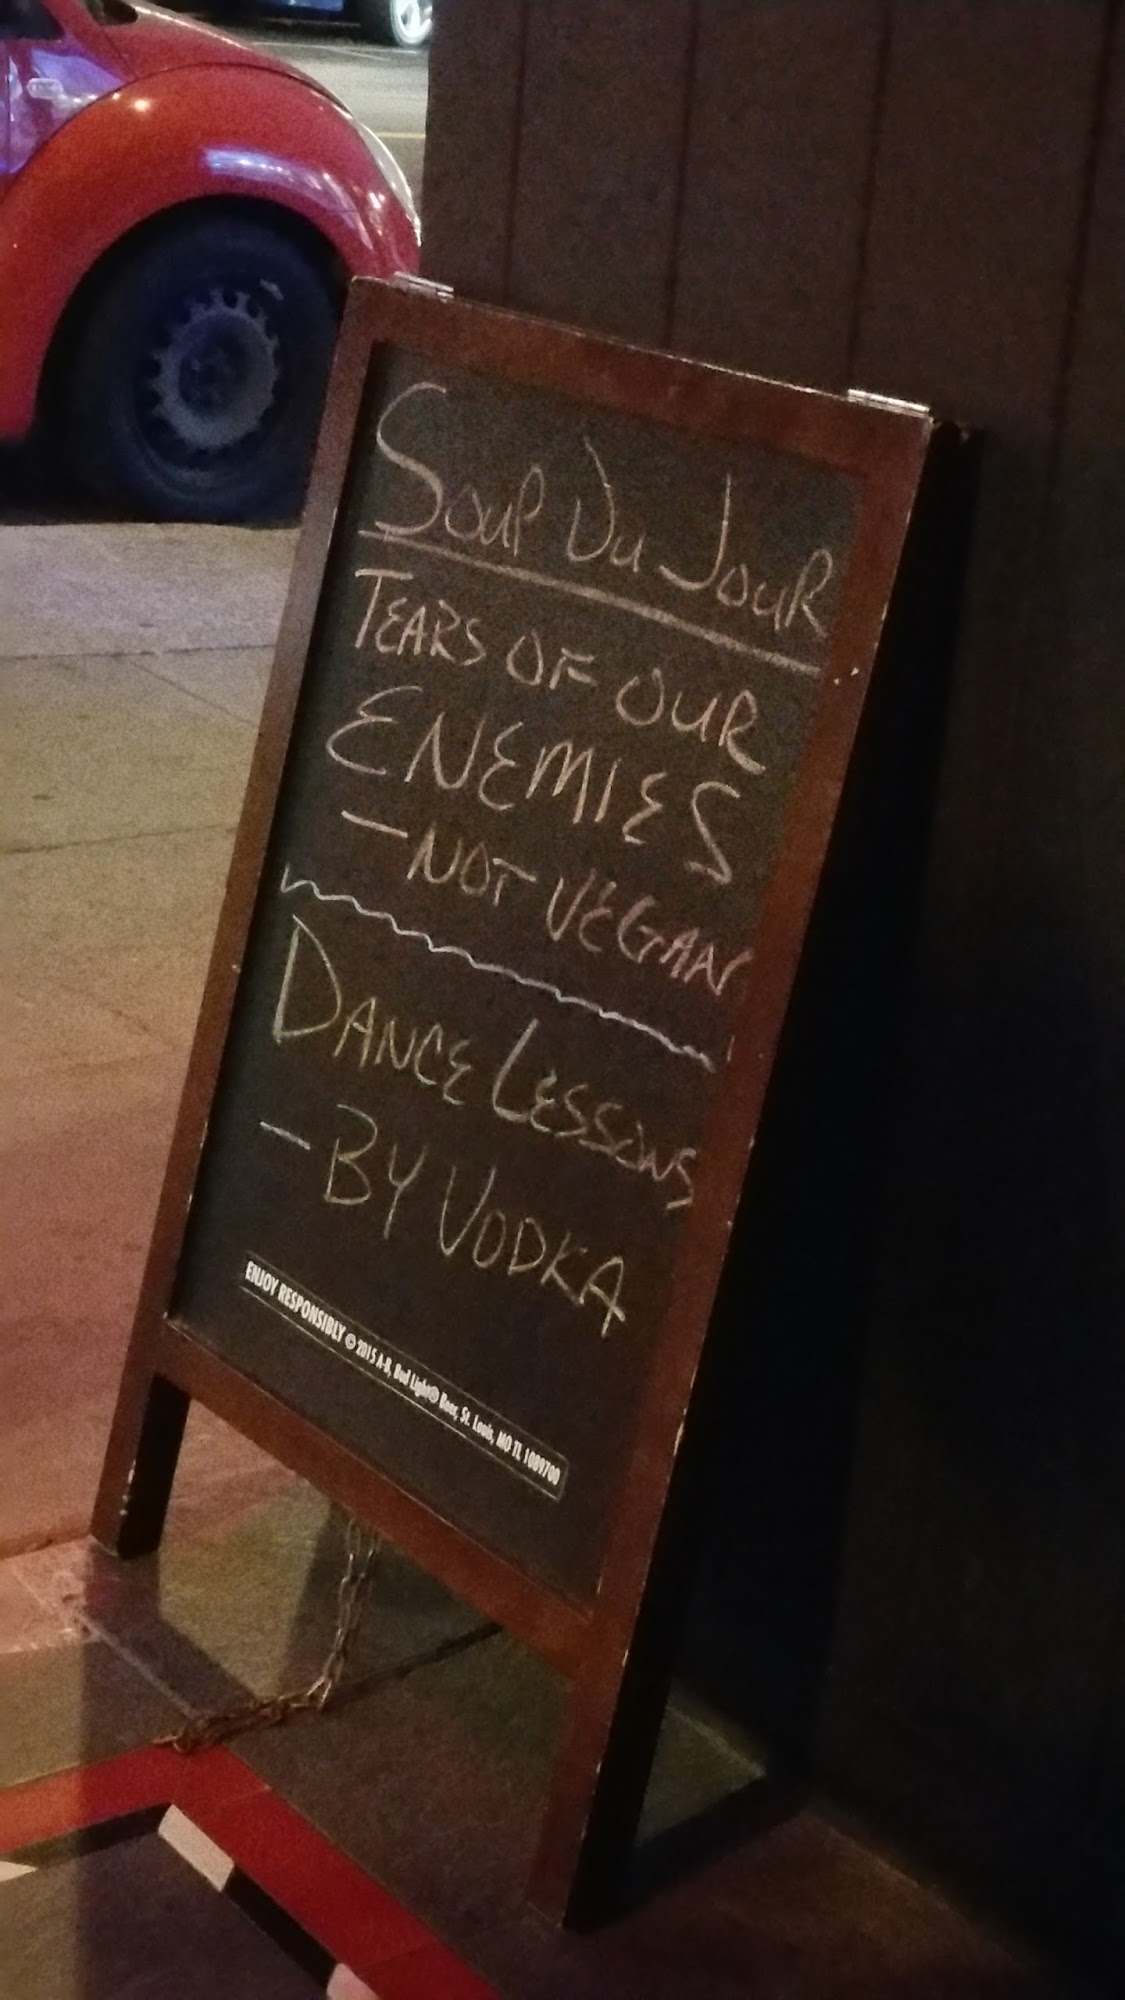 Soup Du Jour
TEARS OF OUR
ENEMIES
- NOT VEGAN
DANCE LESSONS
- BY VODKA
ENJOY RESPONSIBLY © 2015 A-B, Bud Light® Beer, St. Louis, MO TL 1089700